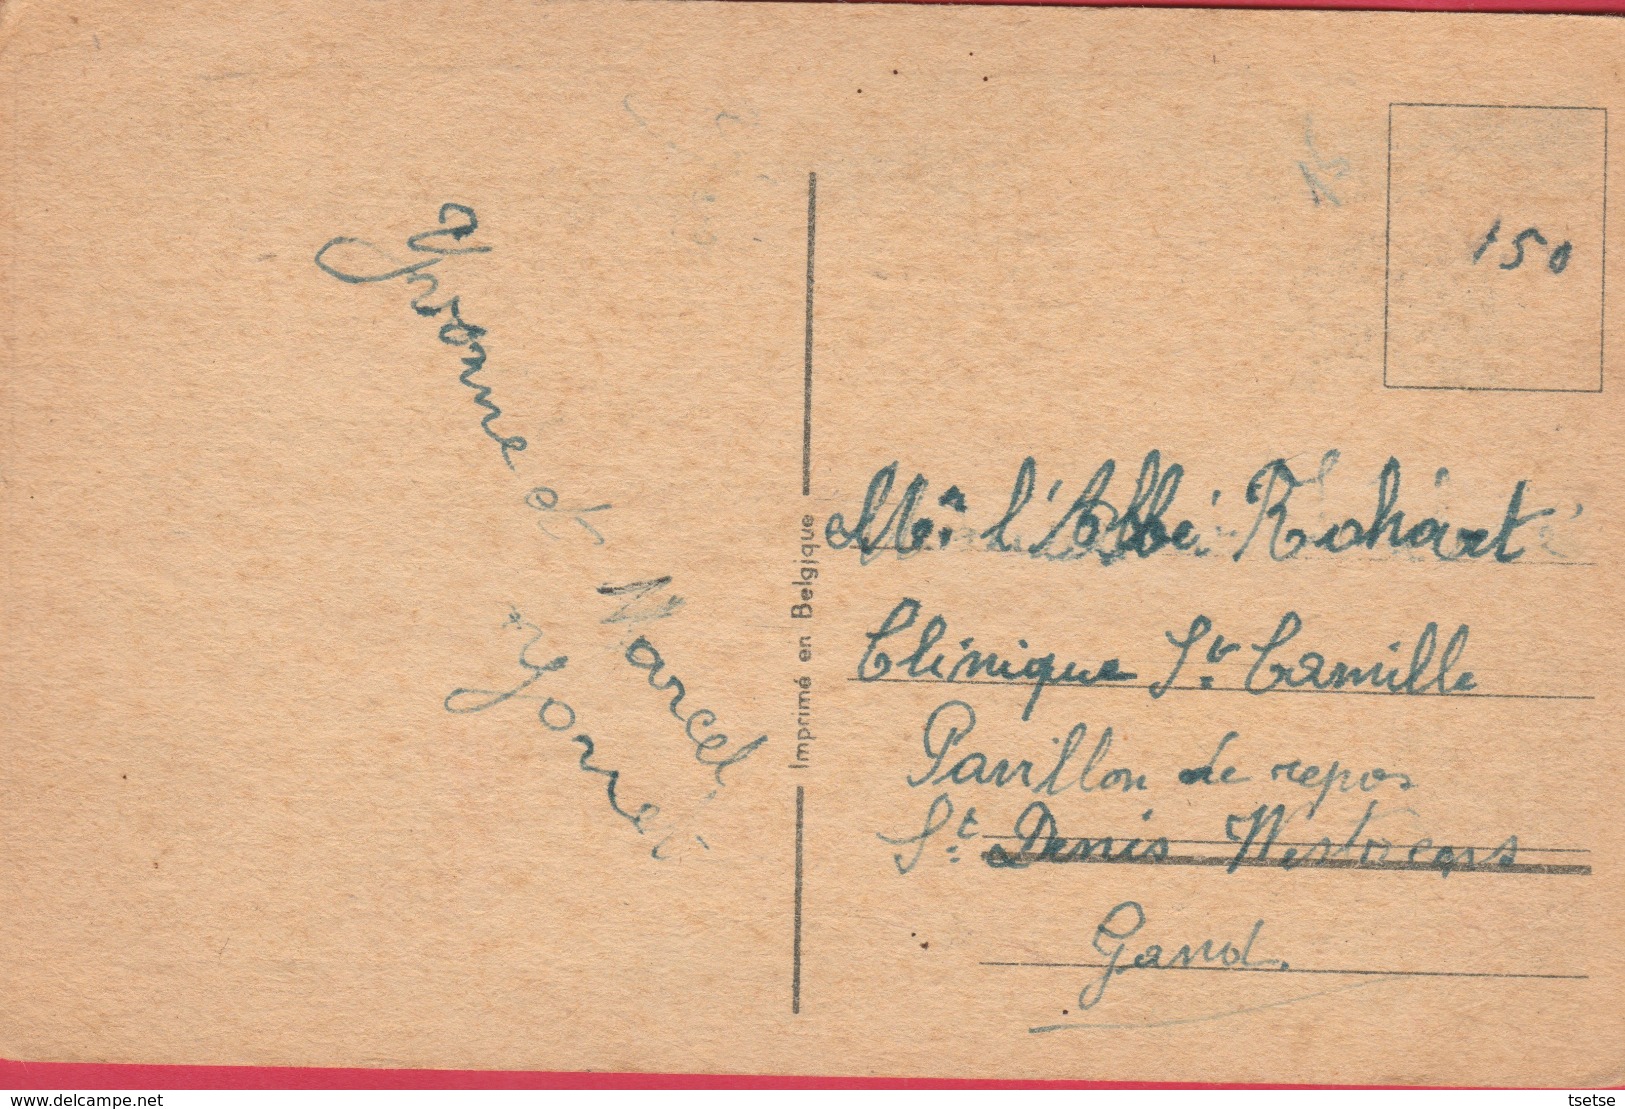 Yvonne et Marcel
15
150
Mr. l'Abbé Rohart
Clinique St. Camille
Pavillon de repos
St. Denis Westrem
Gand.
Imprimé en Belgique
www.delcampe.net
tsetse